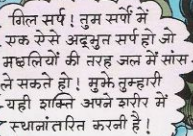 गिल सर्प ! तुम सर्पों में
एक ऐसे अद्भुत सर्प हो जो
मछलियों की तरह जल में सांस
ले सकते हो ! मुझे तुम्हारी
यही शक्ति अपने शरीर में
स्थानांतरित करनी है !